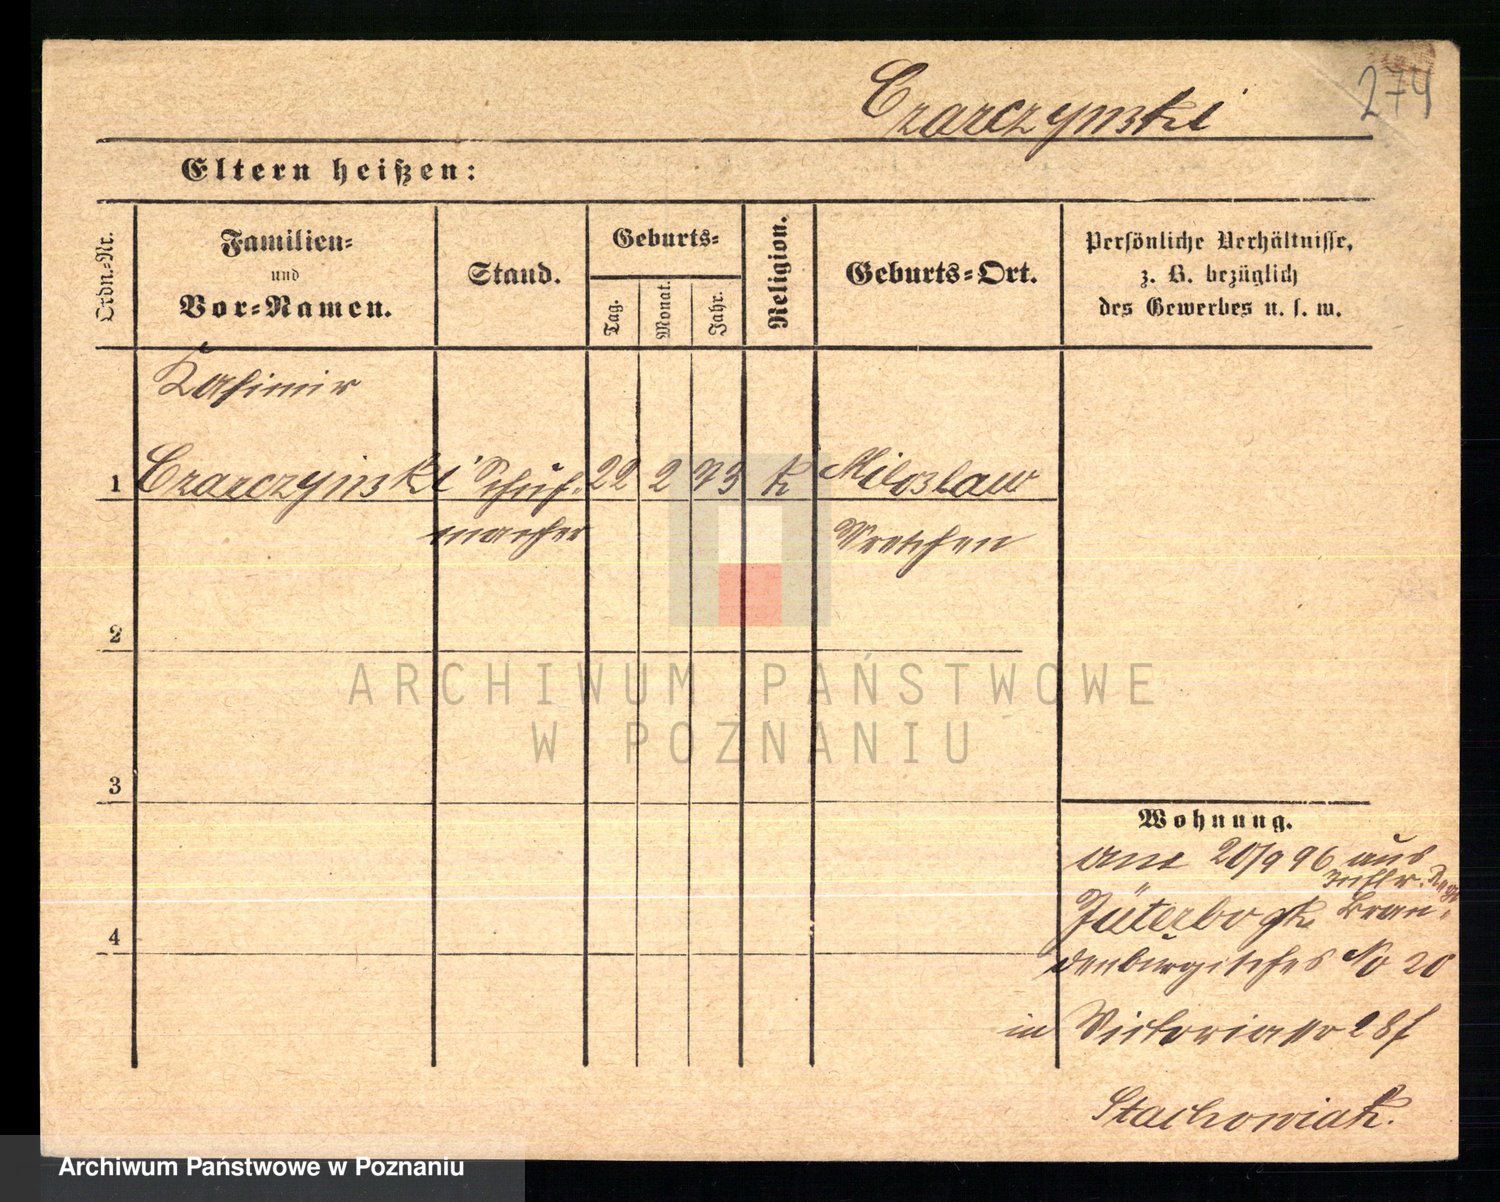 Czarczynski
274
Eltern heißen:
Ordn.-Nr.
Familien-
und
Vor-Namen.
Stand.
Geburts-
Tag.
Monat.
Jahr.
Religion.
Geburts-Ort.
Persönliche Verhältnisse,
z. B. bezüglich
des Gewerbes u. s. w.
Kasimir
1 Czarczynski Schuh- 22 2 73 K Miloslaw
macher Wreschen
2
3
4
Wohnung.
am 20/9 96 aus
Inftr. Regt
Jüterbogk Bran-
denburgisches No 20
in Victoriastr 28
Stachowiak.
ARCHIWUM PAŃSTWOWE
W POZNANIU
Archiwum Państwowe w Poznaniu